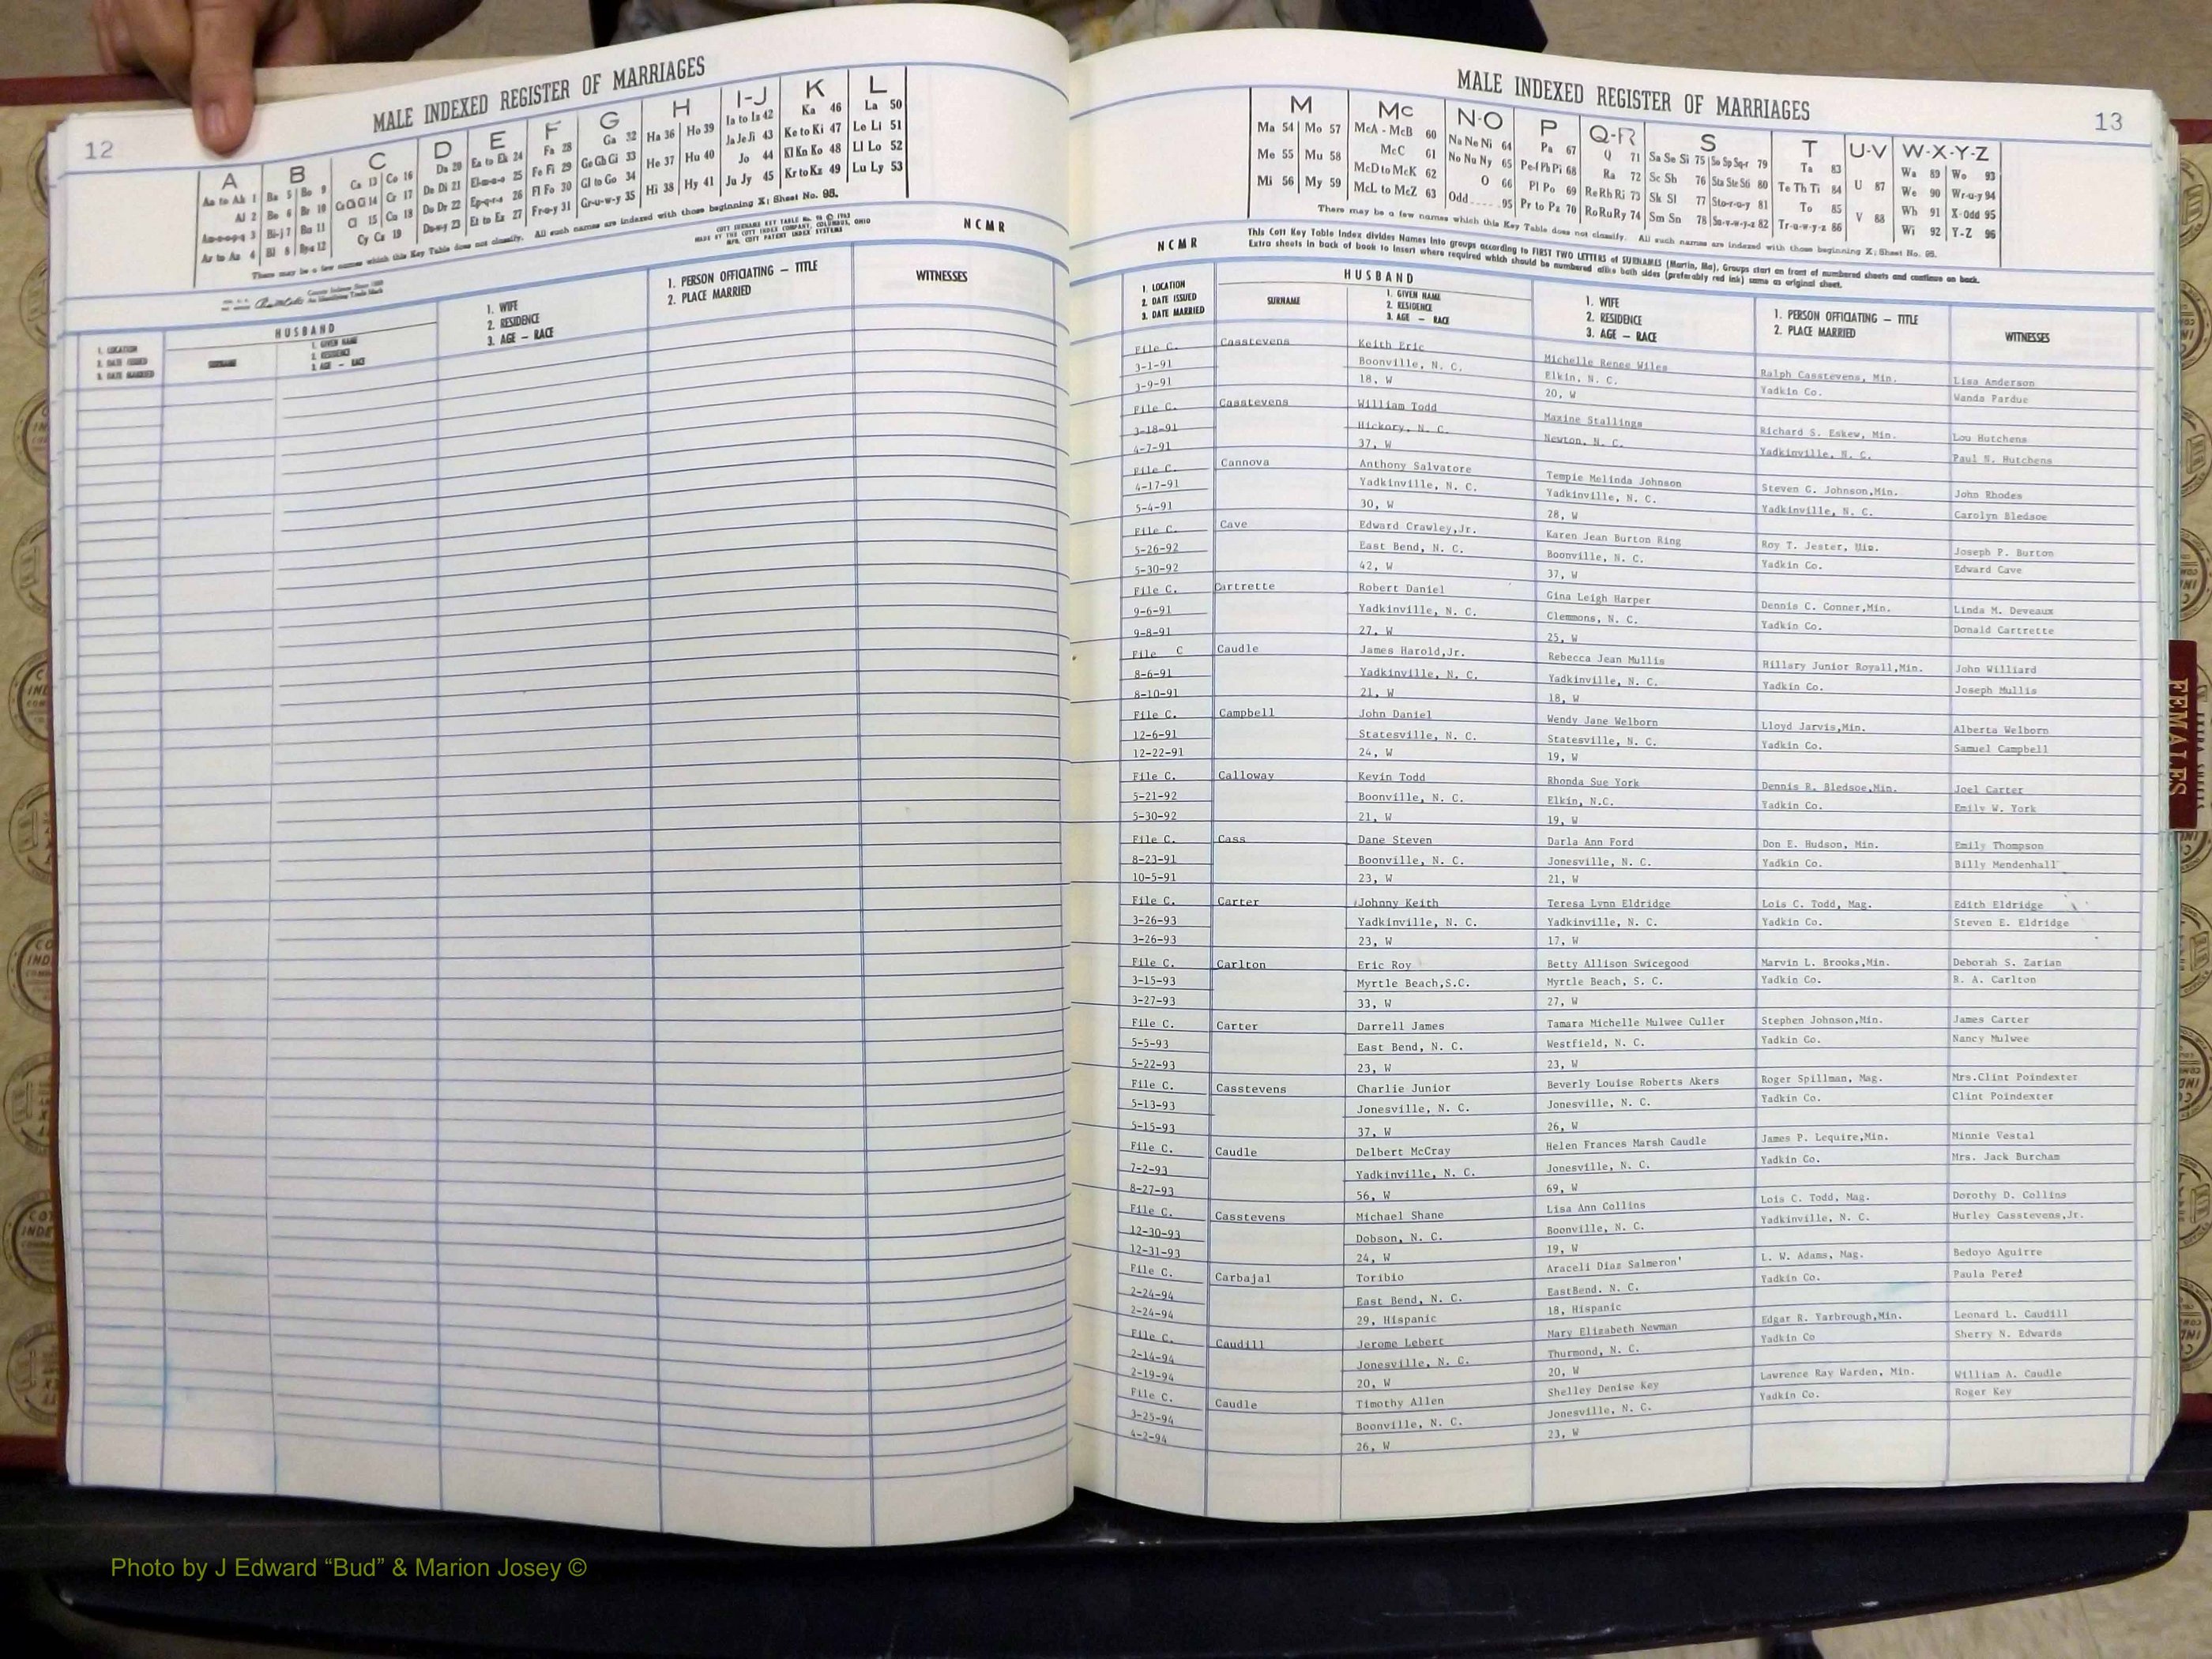 12
MALE INDEXED REGISTER OF MARRIAGES
A B C D E F G H I-J K L
Aa to Ah 1 Ba 5 Bo 9 Ca 13 Co 16 Da 20 Ea to Ek 24 Fa 28 Ga 32 Ha 36 Ho 39 Ia to Iz 42 Ka 46 La 50
Al 2 Be 6 Br 10 Ce Ch Ci 14 Cr 17 De Di 21 El-m-n-o 25 Fe Fi 29 Ge Gh Gi 33 He 37 Hu 40 Ja Je Ji 43 Ke to Ki 47 Le Li 51
Am-n-o-p-q 3 Bi-j 7 Bu 11 Cl 15 Cu 18 Do Dr 22 Ep-q-r-s 26 Fl Fo 30 Gl to Go 34 Hi 38 Hy 41 Jo 44 Kl Kn Ko 48 Ll Lo 52
Ar to Az 4 Bl 8 Bya 12 Cy Cz 19 Du-w-y 23 Et to Ez 27 Fr-u-y 31 Gr-u-w-y 35 Ju Jy 45 Kr to Kz 49 Lu Ly 53
There may be a few names which this Key Table does not classify. All such names are indexed with those beginning X; Sheet No. 95.
MADE BY THE COTT INDEX COMPANY, COLUMBUS, OHIO
NCMR
1. LOCATION
2. DATE ISSUED
3. DATE MARRIED
HUSBAND
SURNAME
1. GIVEN NAME
2. RESIDENCE
3. AGE — RACE
1. WIFE
2. RESIDENCE
3. AGE — RACE
1. PERSON OFFICIATING — TITLE
2. PLACE MARRIED
WITNESSES
MALE INDEXED REGISTER OF MARRIAGES
13
M Mc N-O P Q-R S T U-V W-X-Y-Z
Ma 54 Mo 57 McA - McB 60 Na Ne Ni 64 Pa 67 Q 71 Sa Se Si 75 So Sp Sq-r 79 Ta 83 U 87 Wa 89 Wo 93
Me 55 Mu 58 McC 61 No Nu Ny 65 Pe-f Ph Pi 68 Ra 72 Sc Sh 76 Sta Ste Sti 80 Te Th Ti 84 V 88 We 90 Wr-u-y 94
Mi 56 My 59 McD to McK 62 O 66 Pl Po 69 Re Rh Ri 73 Sk Sl 77 Sto-r-u-y 81 To 85 Wh 91 X-Odd 95
McL to McZ 63 Odd 95 Pr to Pz 70 Ro Ru Ry 74 Sm Sn 78 Su-v-w-y-z 82 Tr-u-w-y-z 86 Wi 92 Y-Z 96
There may be a few names which this Key Table does not classify. All such names are indexed with those beginning X; Sheet No. 95.
NCMR
This Cott Key Table Index divides Names into groups according to FIRST TWO LETTERS of SURNAMES (Martin, Ma). Groups start on front of numbered sheets and continue on back.
Extra sheets in back of book to insert where required which should be numbered alike both sides (preferably red ink) same as original sheet.
1. LOCATION
2. DATE ISSUED
3. DATE MARRIED
HUSBAND
SURNAME
1. GIVEN NAME
2. RESIDENCE
3. AGE — RACE
1. WIFE
2. RESIDENCE
3. AGE — RACE
1. PERSON OFFICIATING — TITLE
2. PLACE MARRIED
WITNESSES
File C. Casstevens Keith Eric Michelle Renee Wiles Ralph Casstevens, Min. Lisa Anderson
3-1-91 Boonville, N. C. Elkin, N. C. Yadkin Co. Wanda Pardue
3-9-91 18, W 20, W
File C. Casstevens William Todd Maxine Stallings Richard S. Eskew, Min. Lou Hutchens
3-18-91 Hickory, N. C. Newton, N. C. Yadkinville, N. C. Paul N. Hutchens
4-7-91 37, W
File C. Cannova Anthony Salvatore Tempie Melinda Johnson Steven G. Johnson,Min. John Rhodes
4-17-91 Yadkinville, N. C. Yadkinville, N. C. Yadkinville, N. C. Carolyn Bledsoe
5-4-91 30, W 28, W
File C. Cave Edward Crawley,Jr. Karen Jean Burton Ring Roy T. Jester, Min. Joseph P. Burton
5-26-92 East Bend, N. C. Boonville, N. C. Yadkin Co. Edward Cave
5-30-92 42, W 37, W
File C. Cartrette Robert Daniel Gina Leigh Harper Dennis C. Conner,Min. Linda M. Deveaux
9-6-91 Yadkinville, N. C. Clemmons, N. C. Yadkin Co. Donald Cartrette
9-8-91 27, W 25, W
File C Caudle James Harold,Jr. Rebecca Jean Mullis Hillary Junior Royall,Min. John Williard
8-6-91 Yadkinville, N. C. Yadkinville, N. C. Yadkin Co. Joseph Mullis
8-10-91 21, W 18, W
File C. Campbell John Daniel Wendy Jane Welborn Lloyd Jarvis,Min. Alberta Welborn
12-6-91 Statesville, N. C. Statesville, N. C. Yadkin Co. Samuel Campbell
12-22-91 24, W 19, W
File C. Calloway Kevin Todd Rhonda Sue York Dennis R. Bledsoe,Min. Joel Carter
5-21-92 Boonville, N. C. Elkin, N.C. Yadkin Co. Emily W. York
5-30-92 21, W 19, W
File C. Cass Dane Steven Darla Ann Ford Don E. Hudson, Min. Emily Thompson
8-23-91 Boonville, N. C. Jonesville, N. C. Yadkin Co. Billy Mendenhall
10-5-91 23, W 21, W
File C. Carter Johnny Keith Teresa Lynn Eldridge Lois C. Todd, Mag. Edith Eldridge
3-26-93 Yadkinville, N. C. Yadkinville, N. C. Yadkin Co. Steven E. Eldridge
3-26-93 23, W 17, W
File C. Carlton Eric Roy Betty Allison Swicegood Marvin L. Brooks,Min. Deborah S. Zarian
3-15-93 Myrtle Beach,S.C. Myrtle Beach, S. C. Yadkin Co. R. A. Carlton
3-27-93 33, W 27, W
File C. Carter Darrell James Tamara Michelle Mulwee Culler Stephen Johnson,Min. James Carter
5-5-93 East Bend, N. C. Westfield, N. C. Yadkin Co. Nancy Mulwee
5-22-93 23, W 23, W
File C. Casstevens Charlie Junior Beverly Louise Roberts Akers Roger Spillman, Mag. Mrs.Clint Poindexter
5-13-93 Jonesville, N. C. Jonesville, N. C. Yadkin Co. Clint Poindexter
5-15-93 37, W 26, W
File C. Caudle Delbert McCray Helen Frances Marsh Caudle James P. Lequire,Min. Minnie Vestal
7-2-93 Yadkinville, N. C. Jonesville, N. C. Yadkin Co. Mrs. Jack Burcham
8-27-93 56, W 69, W
File C. Casstevens Michael Shane Lisa Ann Collins Lois C. Todd, Mag. Dorothy D. Collins
12-30-93 Dobson, N. C. Boonville, N. C. Yadkinville, N. C. Hurley Casstevens,Jr.
12-31-93 24, W 19, W
File C. Carbajal Toribio Araceli Diaz Salmeron' L. W. Adams, Mag. Bedoyo Aguirre
2-24-94 East Bend, N. C. EastBend. N. C. Yadkin Co. Paula Perez
2-24-94 29, Hispanic 18, Hispanic
File C. Caudill Jerome Lebert Mary Elizabeth Newman Edgar R. Yarbrough,Min. Leonard L. Caudill
2-14-94 Jonesville, N. C. Thurmond, N. C. Yadkin Co Sherry N. Edwards
2-19-94 20, W 20, W
File C. Caudle Timothy Allen Shelley Denise Key Lawrence Ray Warden, Min. William A. Caudle
3-25-94 Boonville, N. C. Jonesville, N. C. Yadkin Co. Roger Key
4-2-94 26, W 23, W
FEMALES
Photo by J Edward “Bud” & Marion Josey ©